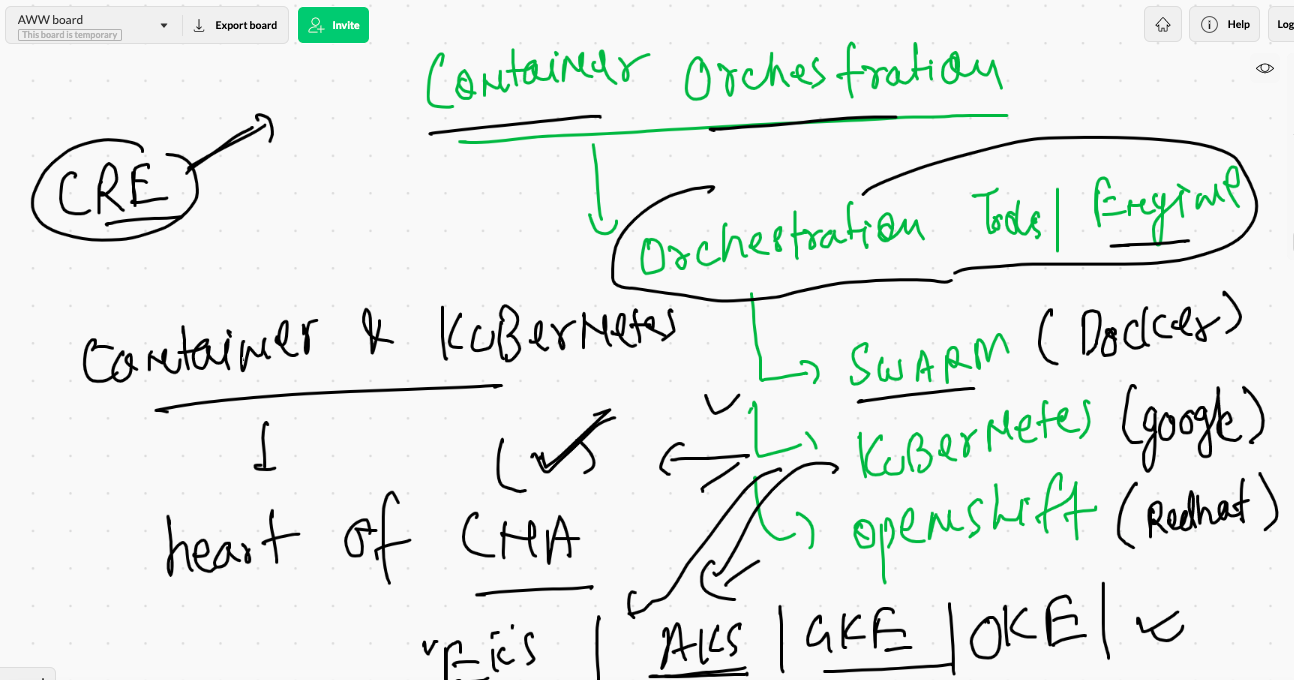 AWW board
This board is temporary
Export board
Invite
Help
Log
Container Orchestration
CRE
Orchestration Tools | Engine
Container & KuBerNetes
SWARM (Docker)
KuBerNetes (google)
openshift (Redhat)
heart of CNA
EKS | AKS | GKE | OKE |